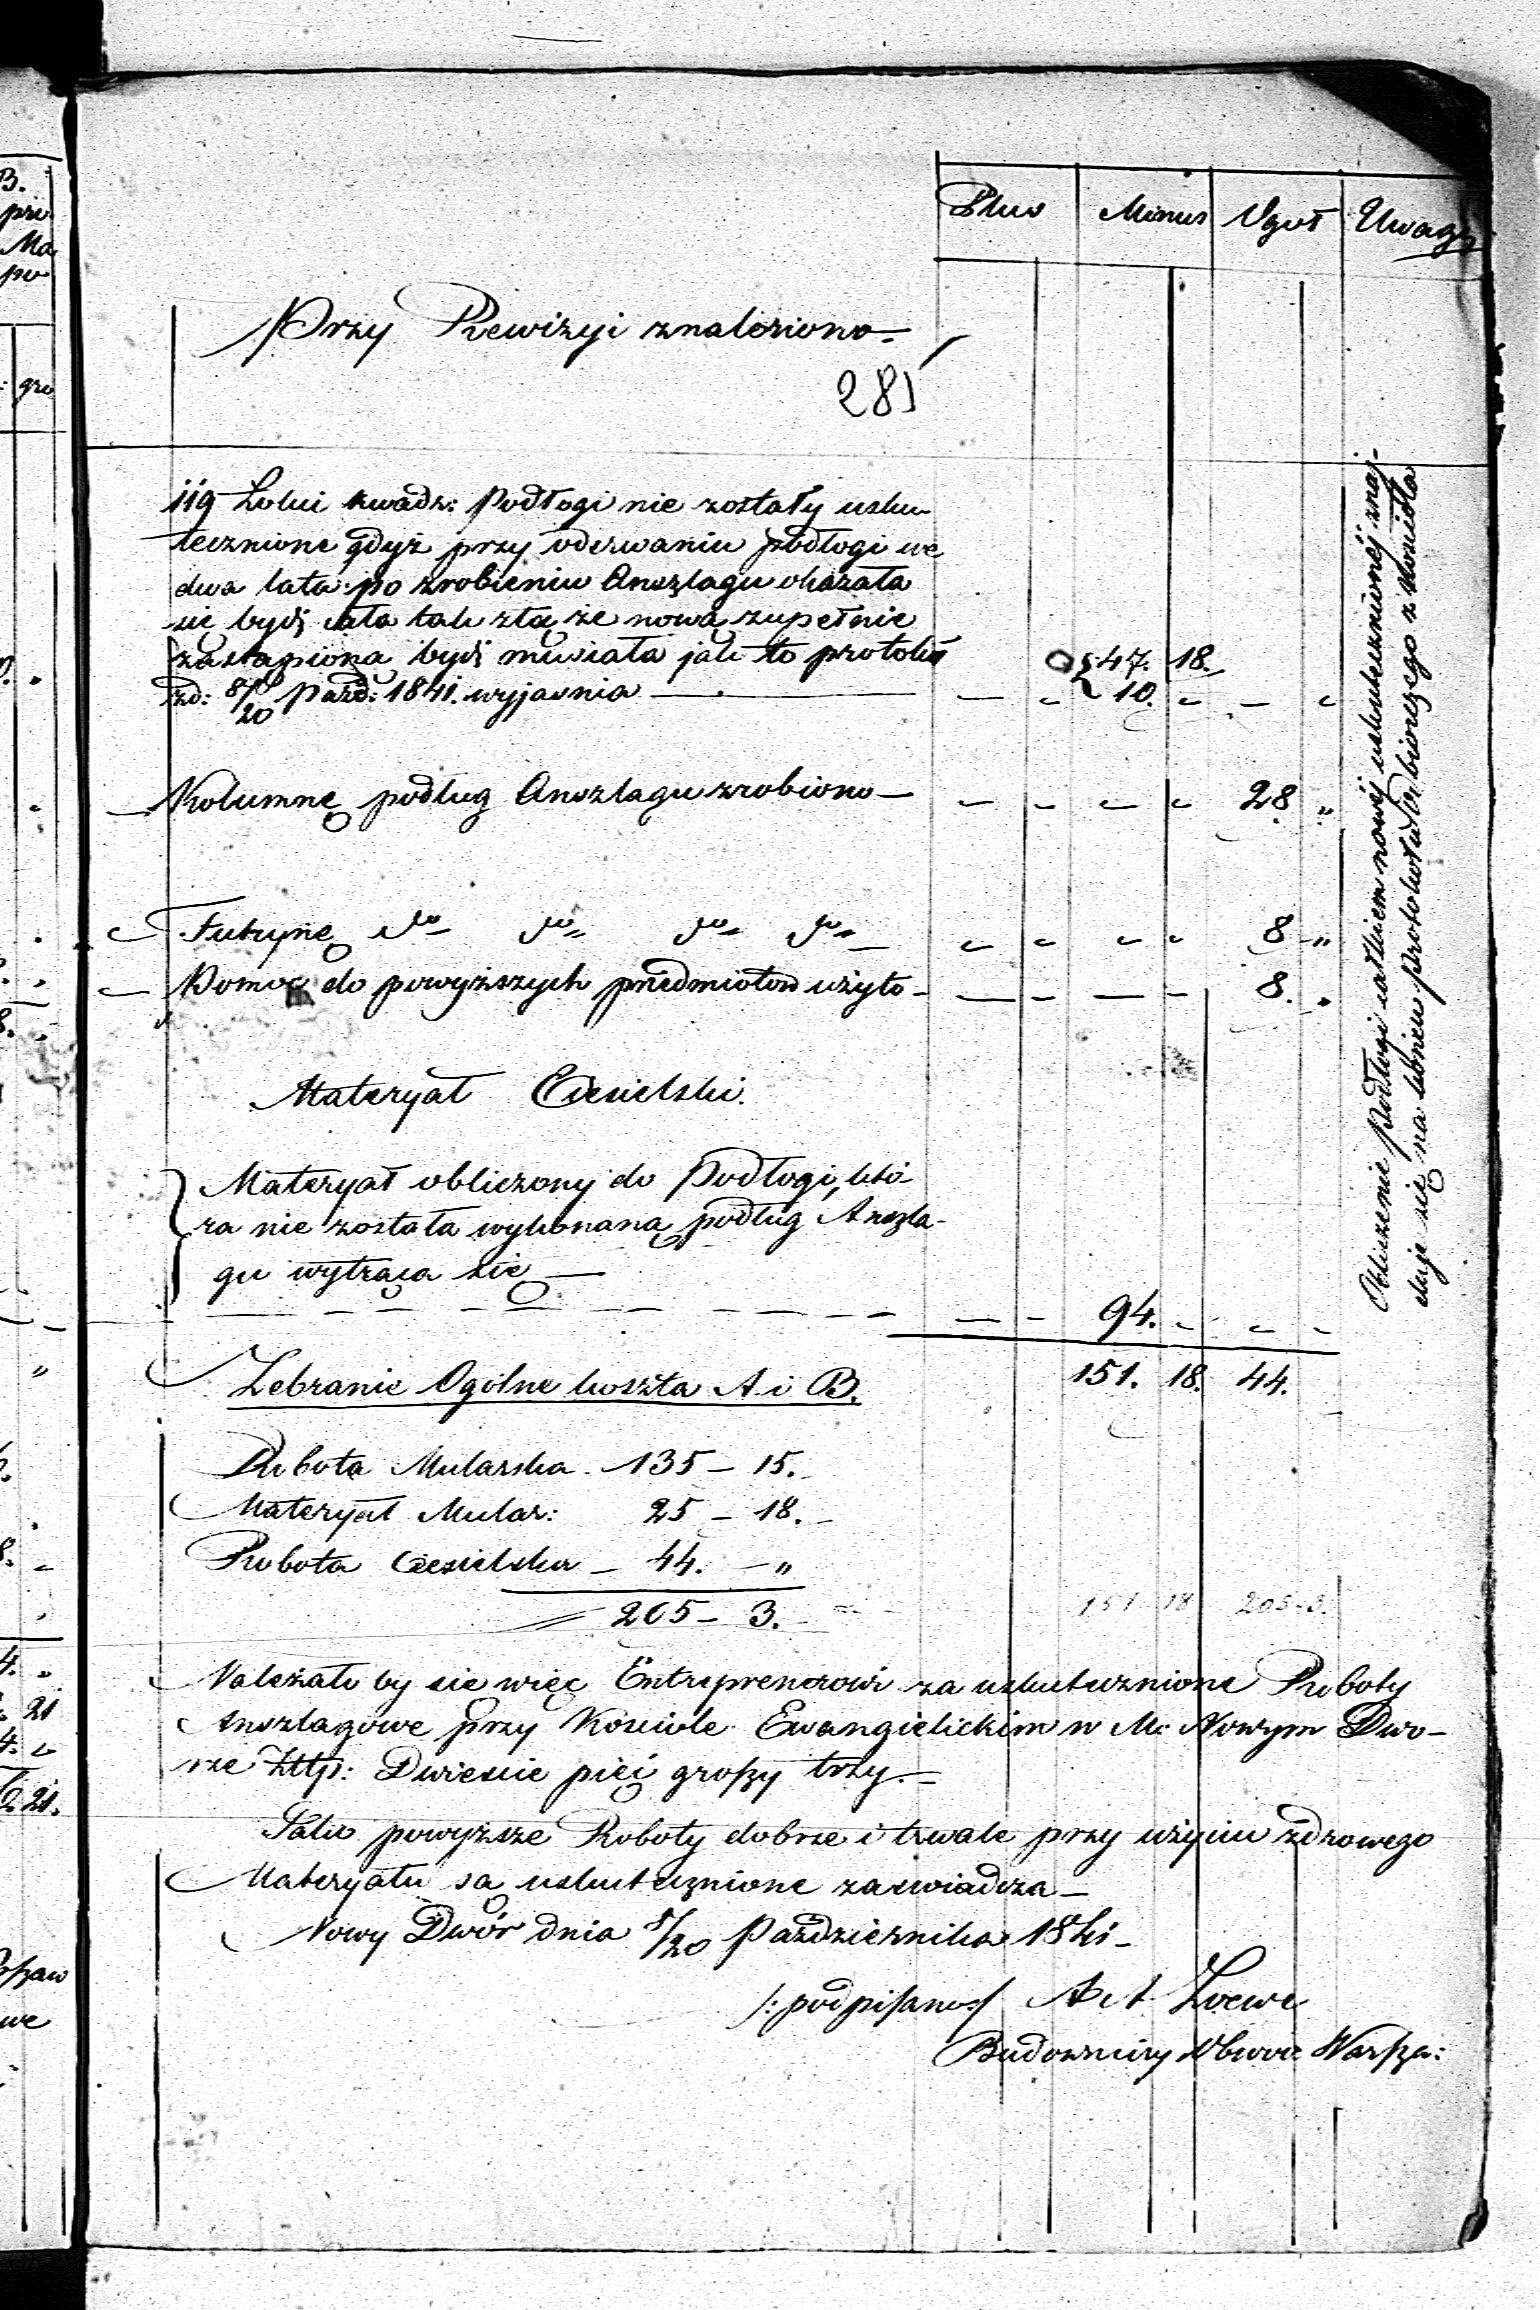 Plus Minus Ogół Uwagi
Przy Rewizyi znaleziono
281
119 Łokci kwadr: Podłogi nie zostały usku
tecznione gdyż przy oderwaniu podłogi we
dwa lata po zrobieniu Anszlagu okazała
się bydź cała tak złą że nową zupełnie
zastąpioną bydź musiała jak to protokół 47. 18.
zd: 8/20 Paźd: 1841. wyjaśnia — 10. „ — „
Kolumnę podług Anszlagu zrobiono — 28. „
Futrynę do do do do 8 - „
Pomoc do powyższych przedmiotów użyto - 8. „
Materyał Ciesielski.
Materyał obliczony do Podłogi, któ-
ra nie została wykonaną podług Anszla-
gu wytrąca się —
94.
151. 18. 44.
Zebranie Ogólne koszta A i B.
Robota Mularska - 135 - 15.
Materyał Mular: 25 - 18.
Robota Ciesielska - 44. - „
205 - 3. 151 18 205-3.
Należało by się więc Entreprenerowi za uskutecznione Roboty
Anszlagowe przy Kościele Ewangielickim w M: Nowym Dwo-
rze Złtp: Dwieście pięć groszy trzy. —
Jako powyższe Roboty dobrze i trwale przy użyciu zdrowego
Materyału są uskutecznione zaświadcza —
Nowy Dwór dnia 8/20 Października 1841 -
/: podpisano :/ Loewe
Budowniczy Obwo: Warsza:
Obliczenie Podłogi całkiem nowej uskutecznionej znaj-
duje się na końcu protokułu odbiorczego z Kościoła